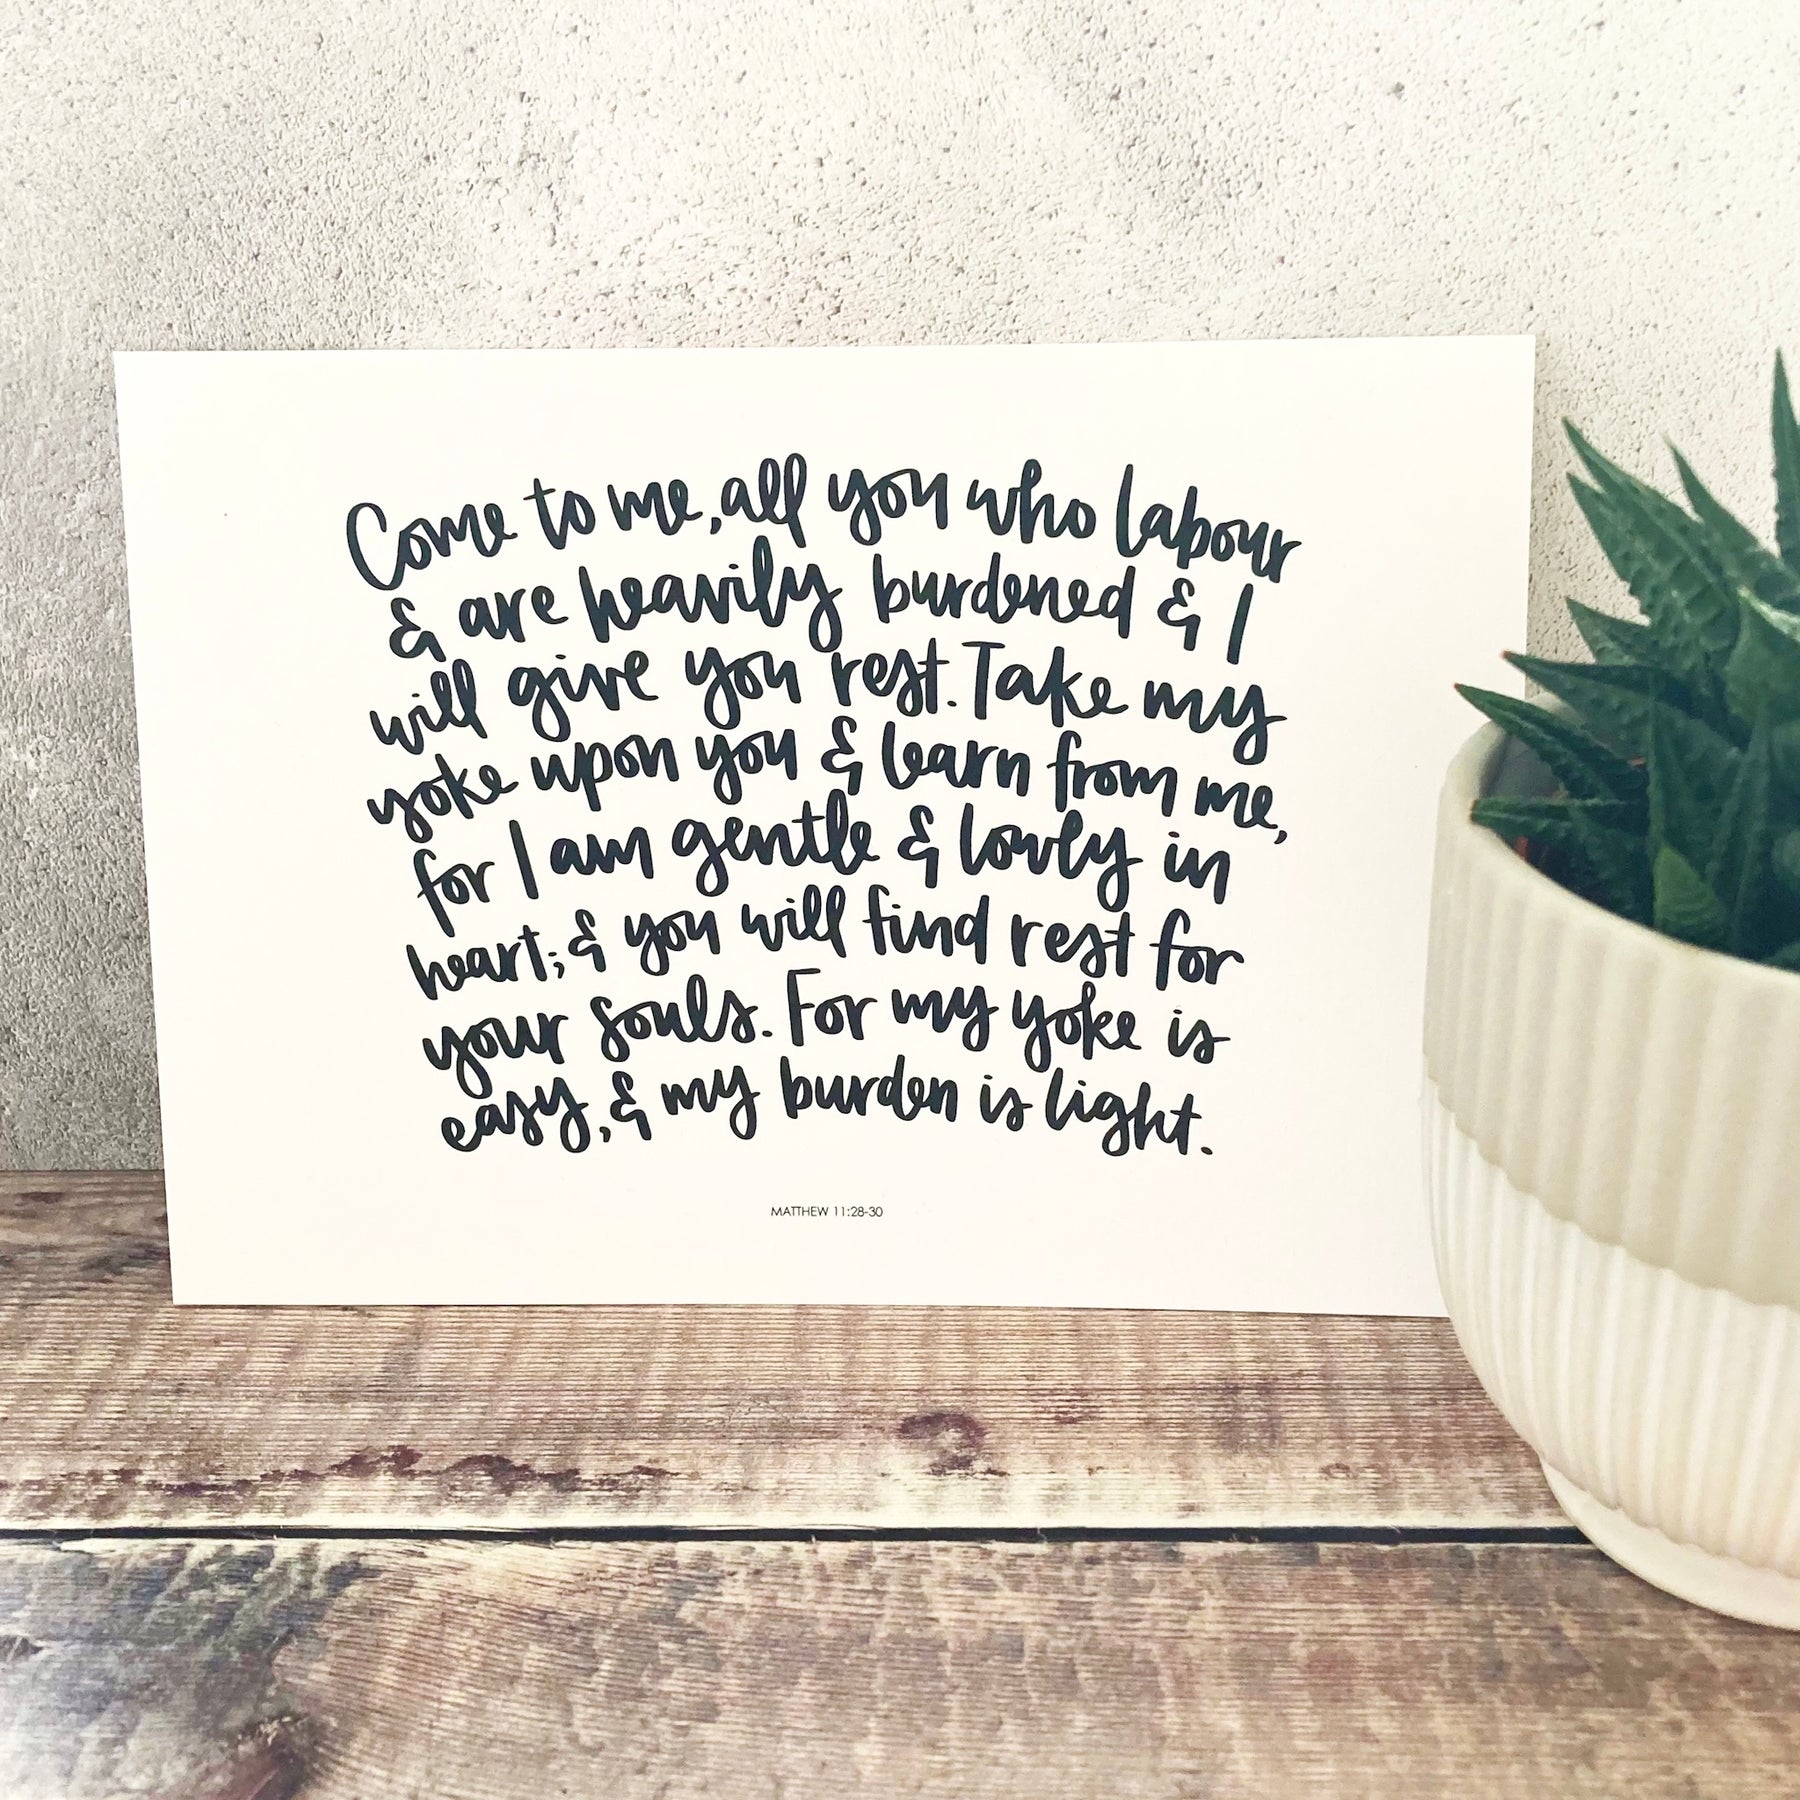 Come to me, all you who labour
& are heavily burdened & I
will give you rest. Take my
yoke upon you & learn from me,
for I am gentle & lowly in
heart; & you will find rest for
your souls. For my yoke is
easy, & my burden is light.
MATTHEW 11:28-30